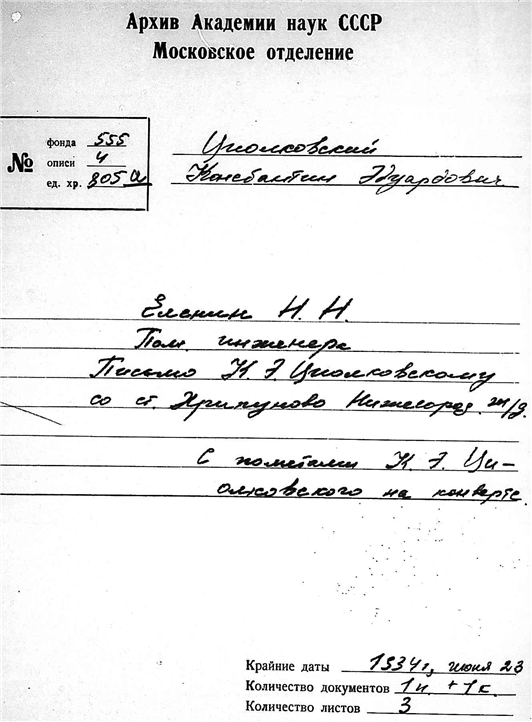 Архив Академии наук СССР
Московское отделение
№
фонда 555
описи 4
ед. хр. 805а
Циолковский
Константин Эдуардович
Еленин Н. Н.
Пом. инженера
Письмо К. Э. Циолковскому
со ст. Хрипуново Нижегород. ж/д.
С пометами К. Э. Ци-
олковского на конверте.
Крайние даты 1934 г, июня 23
Количество документов 1 п. + 1 к.
Количество листов 3